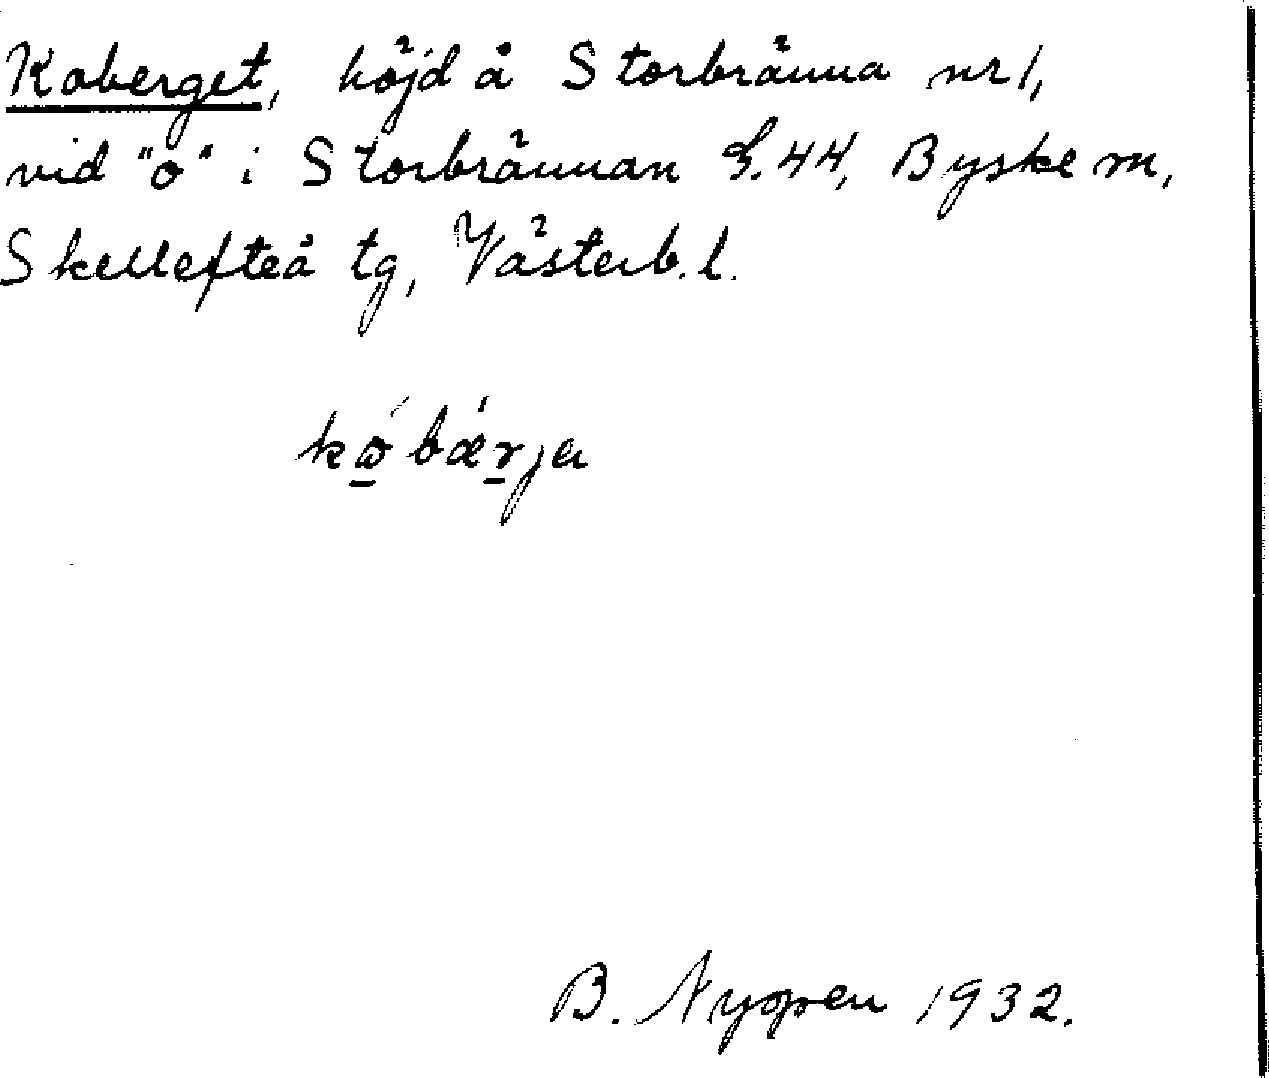 Koberget, höjd å Storbränna nr 1,
vid "o" i Storbrännan S.44, Byske sn,
Skellefteå tg, Västerb. l.
kobærja
B. Nygren 1932.